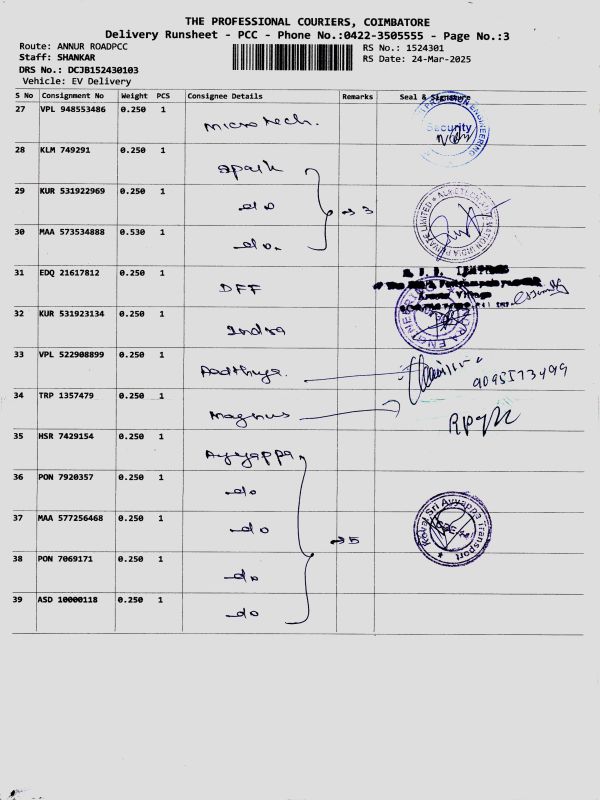 THE PROFESSIONAL COURIERS, COIMBATORE
Delivery Runsheet - PCC - Phone No.:0422-3505555 - Page No.:3
Route: ANNUR ROADPCC
RS No.: 1524301
Staff: SHANKAR
RS Date: 24-Mar-2025
DRS No.: DCJB152430103
Vehicle: EV Delivery
S No Consignment No Weight PCS Consignee Details Remarks Seal & Signature
27 VPL 948553486 0.250 1 Microtech.
Security
28 KLM 749291 0.250 1 Spark
29 KUR 531922969 0.250 1 do → 3
30 MAA 573534888 0.530 1 do.
31 EDQ 21617812 0.250 1 DFF
32 KUR 531923134 0.250 1 Indra
33 VPL 522908899 0.250 1 Aadthya.
9095573499
34 TRP 1357479 0.250 1 Magnus
35 HSR 7429154 0.250 1 Ayyappa
36 PON 7920357 0.250 1 do
37 MAA 577256468 0.250 1 do → 5
Kovai Sri Ayyappa Transport
38 PON 7069171 0.250 1 do
39 ASD 10000118 0.250 1 do